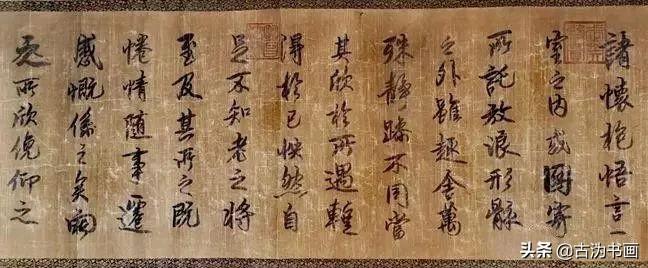 諸懷抱悟言一
室之内或因寄
所託放浪形骸
之外雖趣舍萬
殊靜躁不同當
其欣於所遇輒
得於己怏然自
足不知老之將
至及其所之既
惓情隨事遷
感慨係之矣向
之所欣俛仰之
头条 @古沩书画